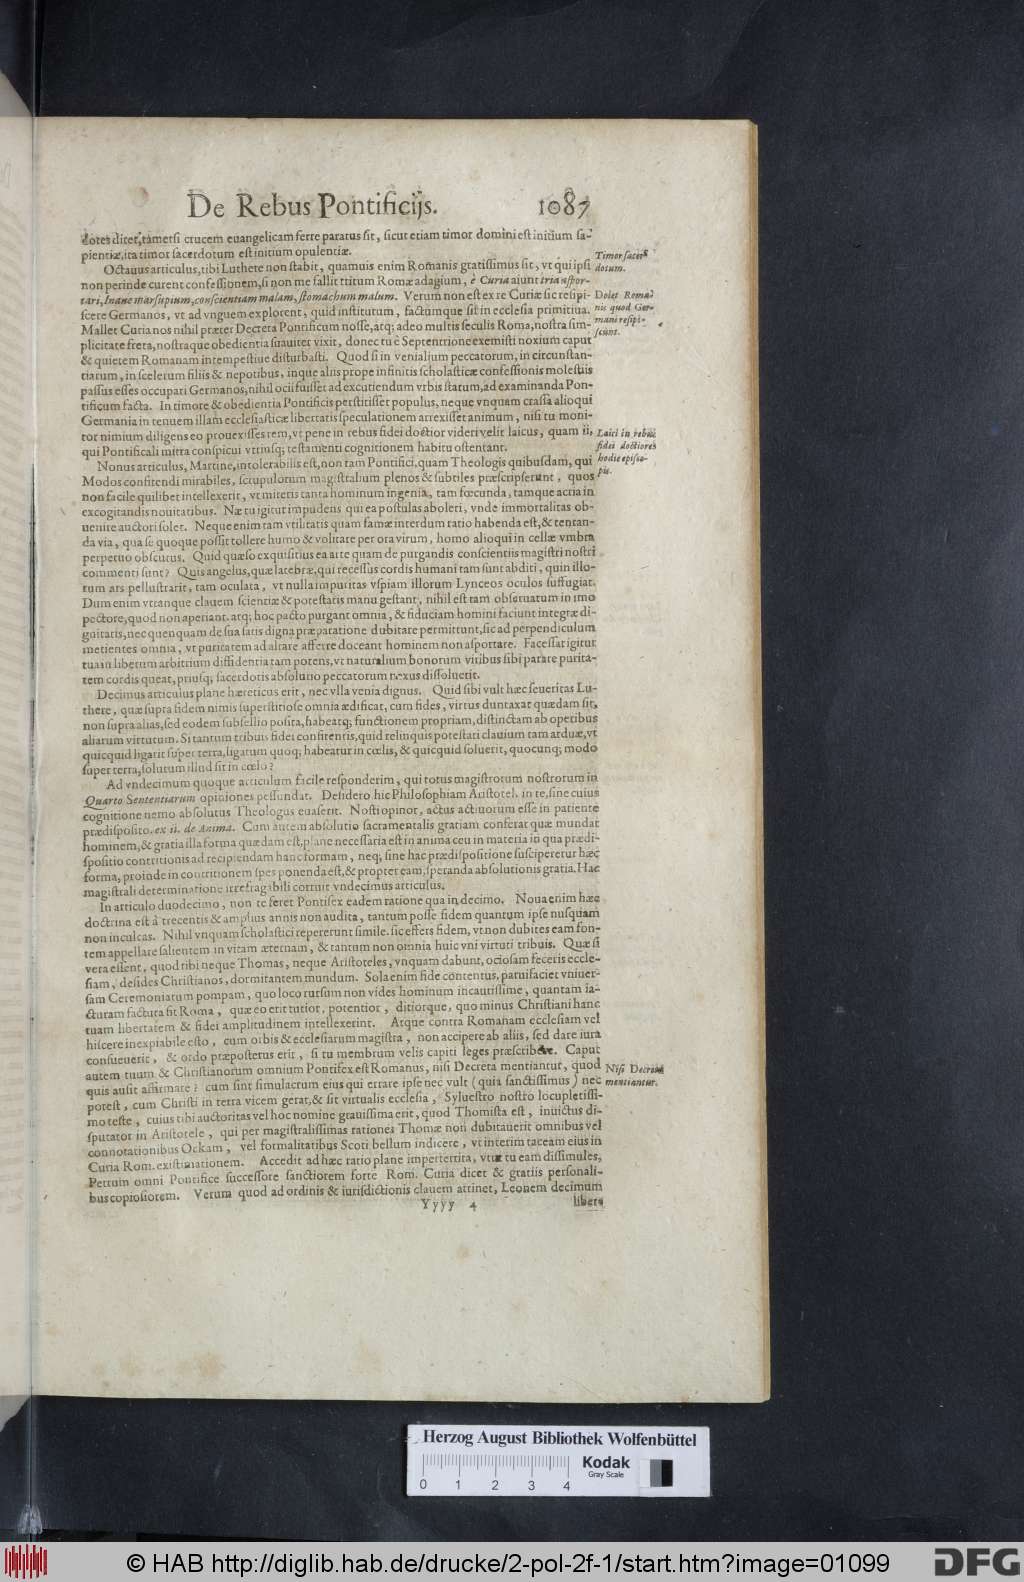 De Rebus Pontificijs. 1087
dotes dicet, tametsi crucem euangelicam ferre paratus sit, sicut etiam timor domini est initium sa-
pientiæ, ita timor sacerdotum est initium opulentiæ.
Timor sacer-
dotum.
Octauus articulus, tibi Luthere non stabit, quamuis enim Romanis gratissimus sit, vt qui ipsi
non perinde curent confessionem, si non me fallit tritum Romæ adagium, è Curia aiunt tria asspor-
tari, Inane marsupium, conscientiam malam, stomachum malum. Verum non est ex re Curiæ sic resipi-
scere Germanos, vt ad vnguem explorent, quid institutum, factumque sit in ecclesia primitiua.
Dolet Roma-
nis quod Ger-
mani resipi-
scunt.
Mallet Curianos nihil præter Decreta Pontificum nosse, atq; adeo multis seculis Roma, nostra sim-
plicitate freta, nostraque obedientia suauiter vixit, donec tu è Septentrione exemisti noxium caput
& quietem Romanam intempestiue disturbasti. Quod si in venialium peccatorum, in circunstan-
tiarum, in scelerum filiis & nepotibus, inque aliis prope infinitis scholasticæ confessionis molestiis
passus esses occupari Germanos, nihil ocii fuisset ad excutiendum vrbis statum, ad examinanda Pon-
tificum facta. In timore & obedientia Pontificis perstitisset populus, neque vnquam crassa alioqui
Germania in tenuem illam ecclesiasticæ libertatis speculationem arrexisset animum, nisi tu moni-
tor nimium diligens eo prouexisses rem, vt pene in rebus fidei doctior videri velit laicus, quam ii,
qui Pontificali mitra conspicui vtriusq; testamenti cognitionem habitu ostentant.
Laici in rebus
fidei doctiores
hodie episco-
pis.
Nonus articulus, Martine, intolerabilis est, non tam Pontifici, quam Theologis quibusdam, qui
Modos confitendi mirabiles, scrupulorum magistralium plenos & subtiles præscripserunt, quos
non facile quilibet intellexerit, vt miteris tanta hominum ingenia, tam fœcunda, tamque acria in
excogitandis nouitatibus. Næ tu igitur impudens qui ea postulas aboleri, vnde immortalitas ob-
uenire auctori solet. Neque enim tam vtilitatis quam famæ interdum ratio habenda est, & tentan-
da via, qua se quoque possit tollere humo & volitare per ora virum, homo alioqui in cellæ vmbra
perpetuo obscurus. Quid quæso exquisitius ea arte quam de purgandis conscientiis magistri nostri
commenti sunt? Quis angelus, quæ latebræ, qui recessus cordis humani tam sunt abditi, quin illo-
rum ars pellustrarit, tam oculata, vt nulla impuritas vspiam illorum Lynceos oculos suffugiat.
Dum enim vtranque clauem scientiæ & potestatis manu gestant, nihil est tam obseruatum in imo
pectore, quod non aperiant. atq; hoc pacto purgant omnia, & fiduciam homini faciunt integræ di-
gnitatis, nec quenquam de sua satis digna præparatione dubitare permittunt, sic ad perpendiculum
metientes omnia, vt puritatem ad altare afferre doceant hominem non asportare. Facessat igitur
tuam liberum arbitrium diffidentia tam potens, vt naturalium bonorum viribus sibi parare purita-
tem cordis queat, priusq; sacerdotis absolutio peccatorum nexus dissoluerit.
Decimus articulus plane hæreticus erit, nec vlla venia dignus. Quid sibi vult hæc seueritas Lu-
there, quæ supra fidem nimis superstitiose omnia ædificat, cum fides, virtus duntaxat quædam sit,
non supra alias, sed eodem subsellio posita, habeatq; functionem propriam, distinctam ab operibus
aliarum virtutum. Si tantum tribuis fidei confitentis, quid relinquis potestati clauium tam arduæ, vt
quicquid ligarit super terra, ligatum quoq; habeatur in cœlis, & quicquid soluerit, quocunq; modo
super terra, solutum illud sit in cœlo?
Ad vndecimum quoque articulum facile responderim, qui totus magistrorum nostrorum in
Quarto Sententiarum opiniones pessundat. Desidero hic Philosophiam Aristotel. in te, sine cuius
cognitione nemo absolutus Theologus euaserit. Nosti opinor, actus actiuorum esse in patiente
prædisposito. ex ii. de Anima. Cum autem absolutio sacramentalis gratiam conferat quæ mundat
hominem, & gratia illa forma quædam est, plane necessaria est in anima ceu in materia in qua prædi-
spositio contritionis ad recipiendam hanc formam, neq; sine hac prædispositione susciperetur hæc
forma, proinde in contritionem spes ponenda est, & propter eam, speranda absolutionis gratia. Hac
magistrali determinatione irrefragibili corruit vndecimus articulus.
In articulo duodecimo, non te feret Pontifex eadem ratione qua in decimo. Noua enim hæc
doctrina est à trecentis & amplius annis non audita, tantum posse fidem quantum ipse nusquam
non inculcas. Nihil vnquam scholastici repererunt simile. sic effers fidem, vt non dubites eam fon-
tem appellare salientem in vitam æternam, & tantum non omnia huic vni virtuti tribuis. Quæ si
vera essent, quod tibi neque Thomas, neque Aristoteles, vnquam dabunt, ociosam feceris eccle-
siam, desides Christianos, dormitantem mundum. Sola enim fide contentus, paruifaciet vniuer-
sam Ceremoniarum pompam, quo loco rursum non vides hominum incautissime, quantam ia-
cturam factura sit Roma, quæ eo erit tutior, potentior, ditiorque, quo minus Christiani hanc
tuam libertatem & fidei amplitudinem intellexerint. Atque contra Romanam ecclesiam vel
hiscere inexpiabile esto, cum orbis & ecclesiarum magistra, non accipere ab aliis, sed dare iura
consueuerit, & ordo præposterus erit, si tu membrum velis capiti leges præscribere. Caput
autem tuum & Christianorum omnium Pontifex est Romanus, nisi Decreta mentiantur, quod
quis ausit affirmare? cum sint simulacrum eius qui errare ipse nec vult (quia sanctissimus) nec
Nisi Decreta
mentiantur.
potest, cum Christi in terra vicem gerat, & sit virtualis ecclesia, Syluestro nostro locupletissi-
mo teste, cuius tibi auctoritas vel hoc nomine grauissima erit, quod Thomista est, inuictus di-
sputator in Aristotele, qui per magistralissimas rationes Thomæ non dubitauerit omnibus vel
connotationibus Ockam, vel formalitatibus Scoti bellum indicere, vt interim taceam eius in
Curia Rom. existimationem. Accedit ad hæc ratio plane imperterrita, vtut tu eam dissimules,
Petrum omni Pontifice successore sanctiorem forte Rom. Curia dicet & gratiis personali-
bus copiosiorem. Verum quod ad ordinis & iurisdictionis clauem attinet, Leonem decimum
Yyyy 4 libere
Herzog August Bibliothek Wolfenbüttel
0 1 2 3 4
Kodak
Gray Scale
© HAB http://diglib.hab.de/drucke/2-pol-2f-1/start.htm?image=01099
DFG